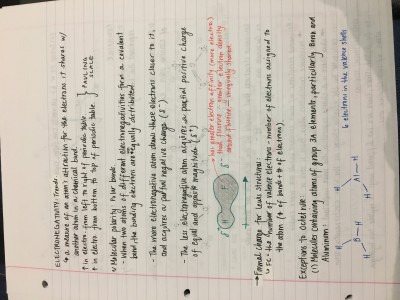 ELECTRONEGATIVITY Trends
↳ a measure of an atom's attraction for the electrons it shares w/
another atom in a chemical bond.
↑ in electro. from left to right of periodic table.
↑ in electro from bottom to top of periodic table.
} PAULING
SCALE
Molecular polarity: Polar Bonds
- When two atoms of different electronegativities form a covalent
bond, the bonding electrons are unequally distributed
- The more electronegative atom draws these electrons closer to it,
and acquires a partial negative charge (δ⁻)
- The less electronegative atom acquires a partial positive charge
of equal and opposite magnitude (δ⁺)
δ⁺ H F δ⁻
→ has greater electron affinity (more electro.)
than fluorine → greater electron density
around fluorine → unequally shared
→ Formal charge for Lewis structures:
↳ FC = the number of valence electrons - number of electrons assigned to
the atom (# of bonds + # of electrons).
Exceptions to Octet Rule:
(1) Molecules containing atoms of group 3A elements, particularly Boron and
Aluminum:
H
H
B — H
H
H
Al — H
6 electrons in the valence shells